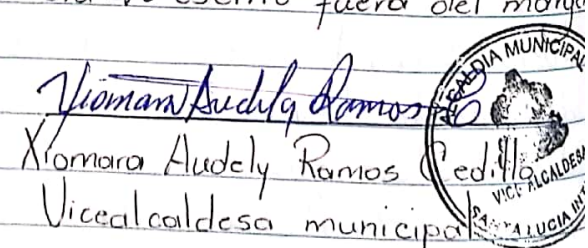 fuera del
Xiomara Audely Ramos C
Xiomara Audely Ramos Cedillo
Vicealcaldesa municipal
ALCALDIA MUNICIPAL
VICE ALCALDESA
SANTA LUCIA